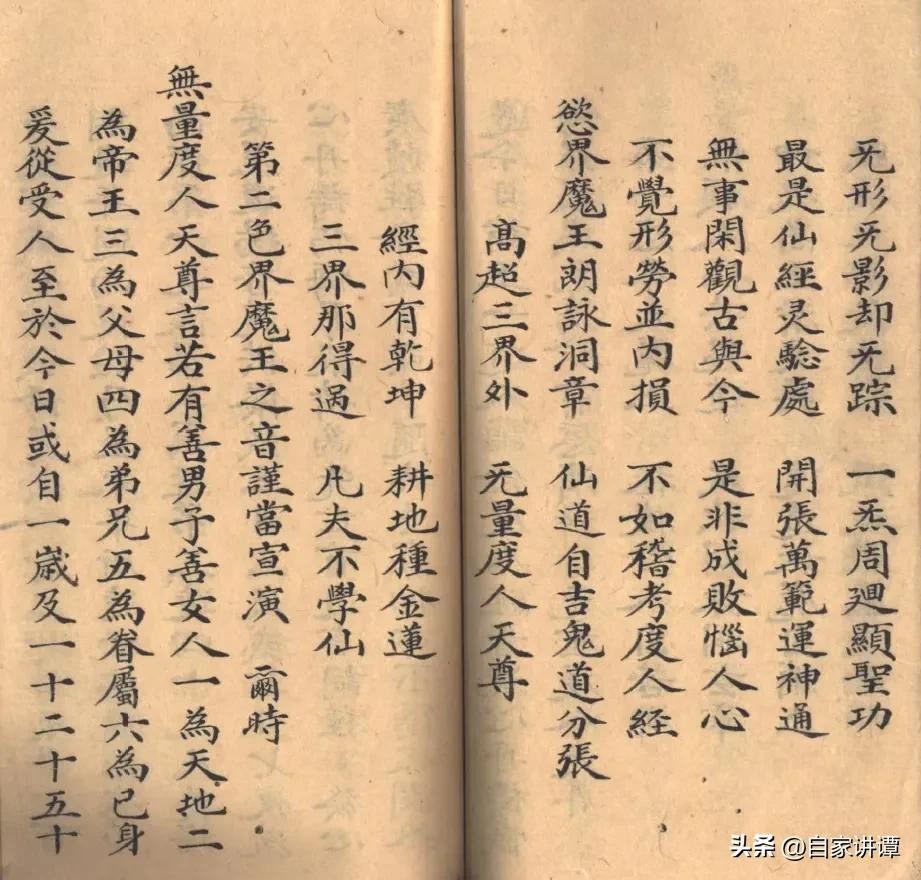 旡形旡影却旡踪 一炁周廻顯聖功
最是仙經灵驗處 開張萬範運神通
無事閑觀古與今 是非成敗惱人心
不覺形勞並內損 不如稽考度人経
慾界魔王朗詠洞章 仙道自吉鬼道分張
髙超三界外 旡量度人天尊
經內有乾坤 耕地種金蓮
三界那得過 凢夫不學仙
第二色界魔王之音謹當宣演 爾時
無量度人天尊言若有善男子善女人一為天地二
為帝王三為父母四為弟兄五為眷屬六為已身
爰從受人至於今日或自一歲及一十二十五十
头条 @自家讲谭